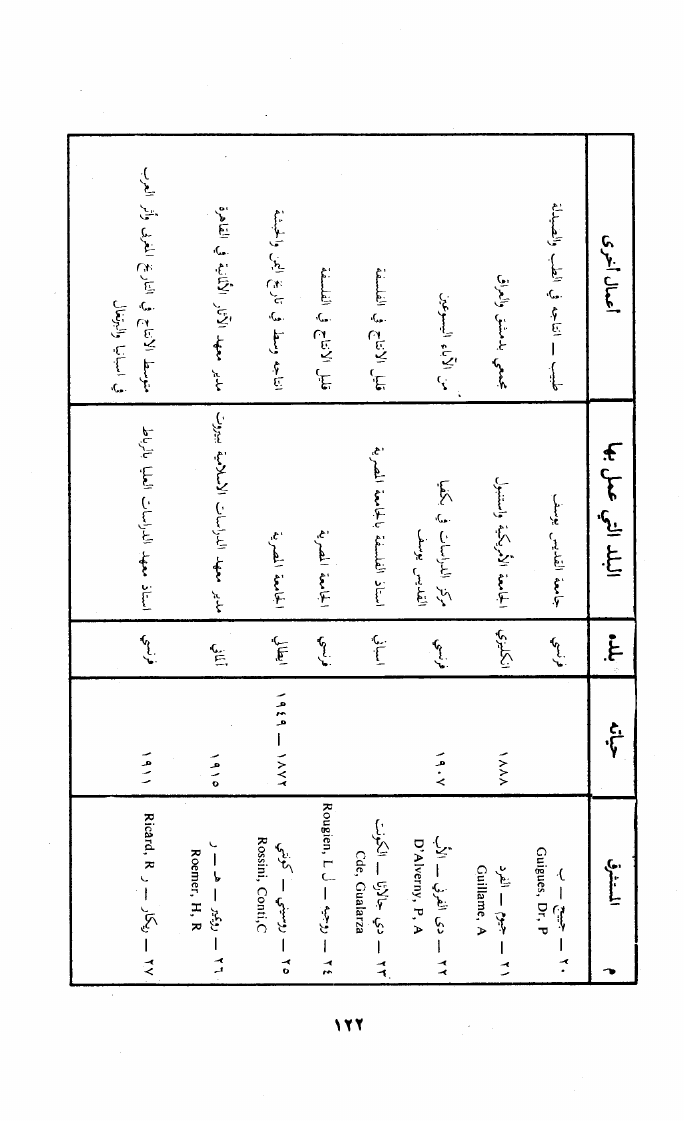 م المستشرق حياته بلده البلد التي عمل بها أعمال أخرى
٢٠ — جييج — ب فرنسي جامعة القديس يوسف طبيب — انتاجه في الطب والصيدلة
Guigues, Dr, P
٢١ — جيوم — الفرد ١٨٨٨ انكليزي الجامعة الأمريكية واستنبول مجمعي بدمشق والعراق
Guillame, A
٢٢ — دي الفرني — الأب ١٩٠٧ فرنسي مركز الدراسات في بكفيا من الآباء اليسوعين
D'Alverny, P, A القديس يوسف
٢٣ — دي جالارثا — الكونت اسباني استاذ الفلسفة بالجامعة المصرية قليل الانتاج في الفلسفة
Cde, Gualarza
٢٤ — روجيه — ل فرنسي الجامعة المصرية قليل الانتاج في الفلسفة
Rougien, L
٢٥ — روسيني — كونتي ١٨٧٢ — ١٩٤٩ ايطالي الجامعة المصرية انتاجه وسط في تاريخ اليمن والحبشة
Rossini, Conti,C
٢٦ — رويمر — هـ — ر ١٩١٥ ألماني مدير معهد الدراسات الاسلامية ببيروت مدير معهد الآثار الألمانية في القاهرة
Roemer, H, R
٢٧ — ريكار — ر ١٩١١ فرنسي استاذ معهد الدراسات العليا بالرباط متوسط الانتاج في التاريخ المغربي وأثر العرب
Ricard, R في اسبانيا والبرتغال
١٢٢